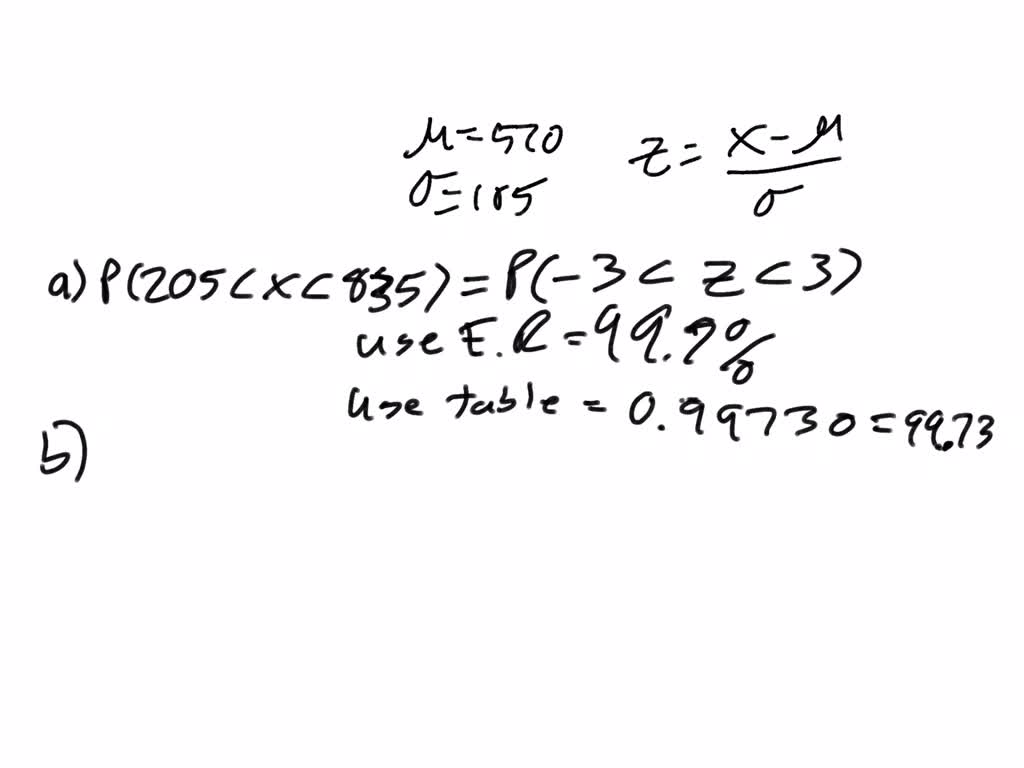 μ=520
σ=105
z = x-μ / σ
a) P(205<x<835) = P(-3 < z < 3)
use E.R = 99.7%
use table = 0.99730 = 99.73
b)